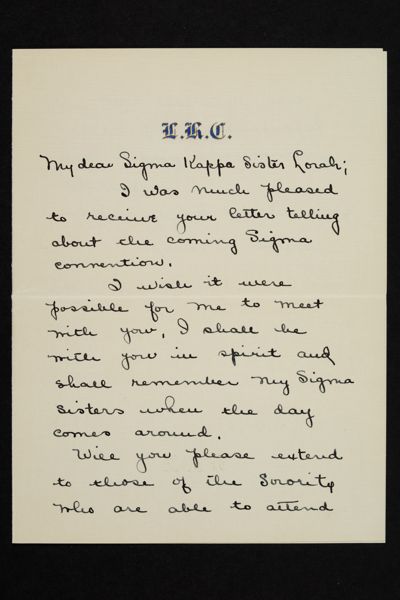 L.H.C.
My dear Sigma Kappa Sister Lorah;
I was much pleased
to receive your letter telling
about the coming Sigma
convention.
I wish it were
possible for me to meet
with you. I shall be
with you in spirit and
shall remember my Sigma
sisters when the day
comes around.
Will you please extend
to those of the Sorority
who are able to attend